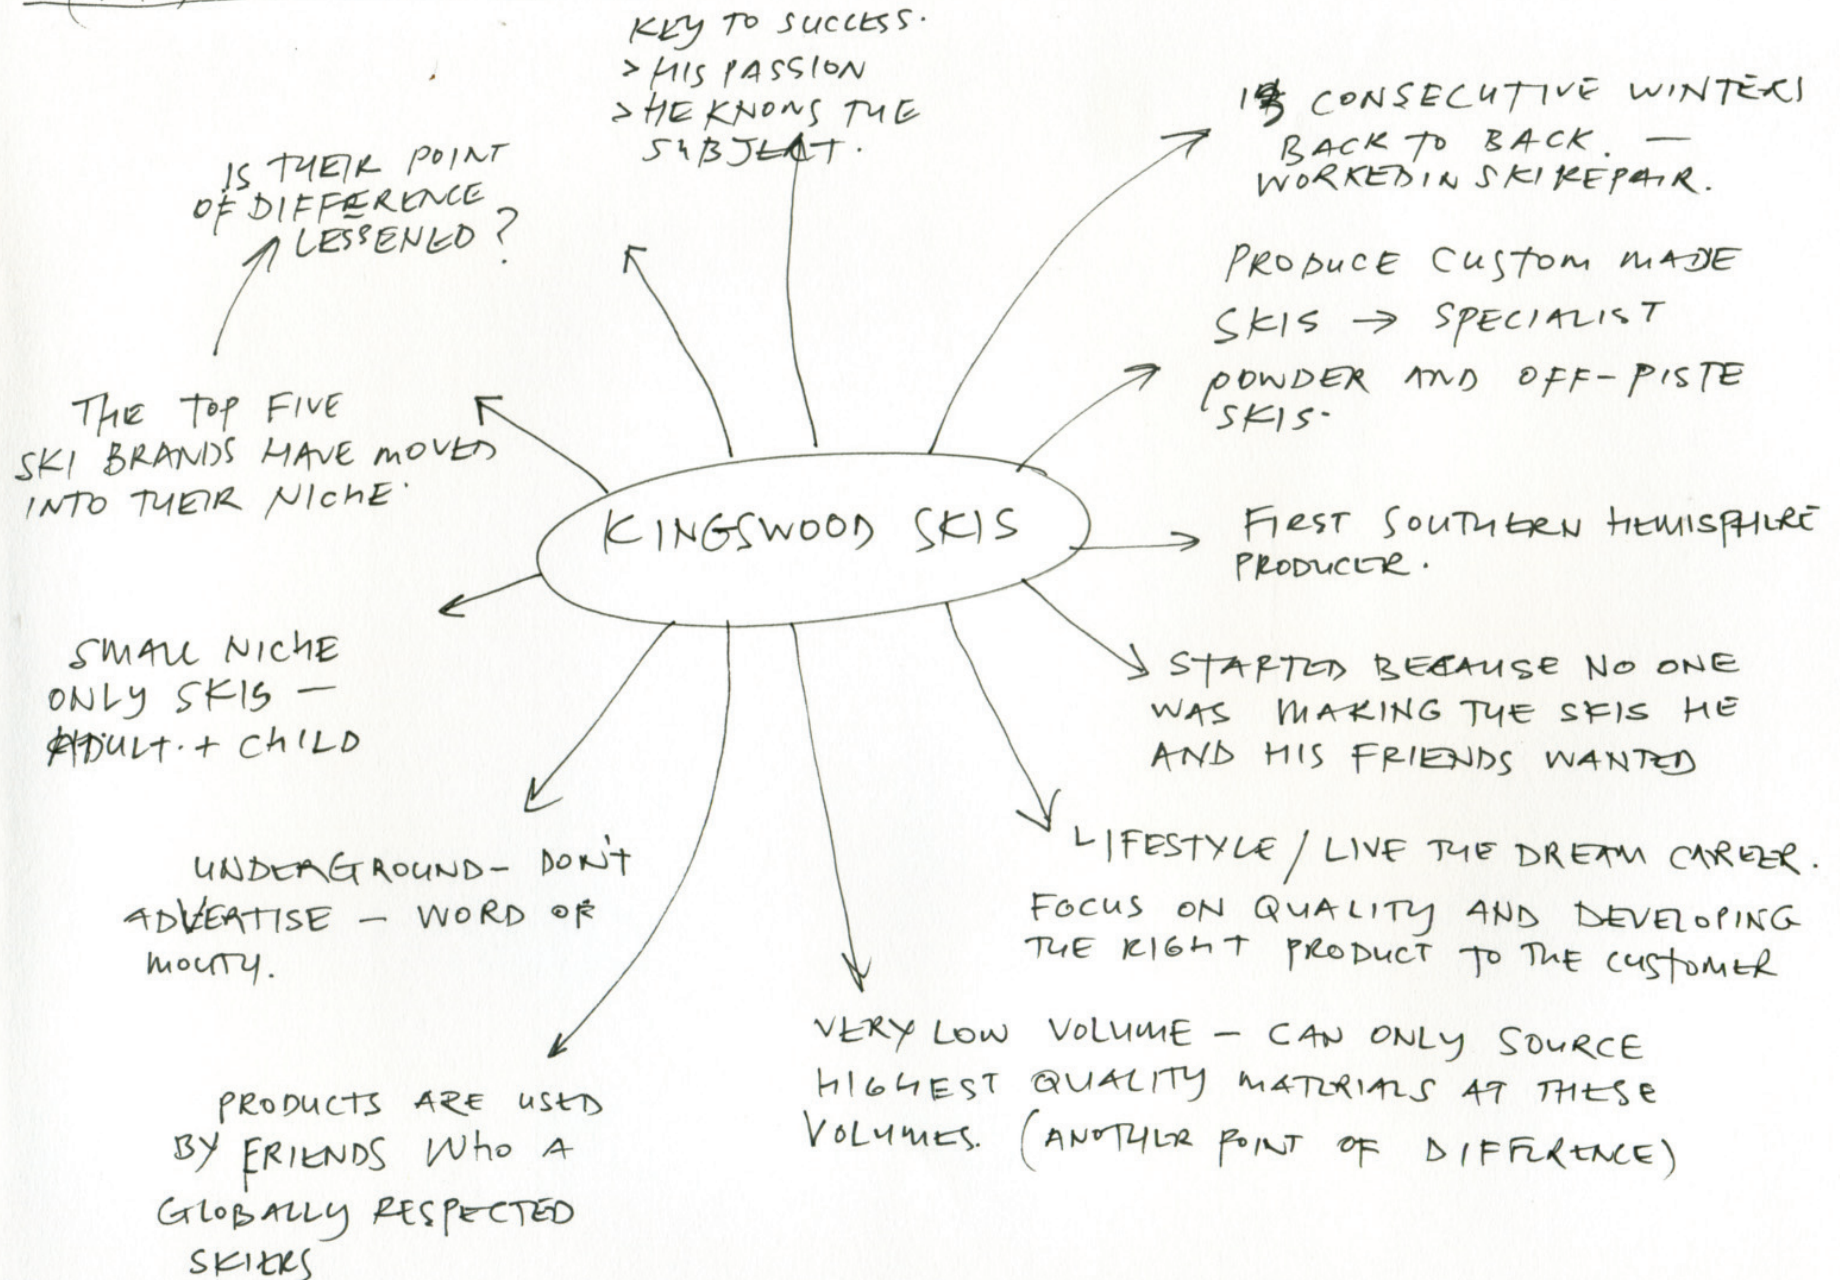 KEY TO SUCCESS.
> HIS PASSION
> HE KNOWS THE
SUBJECT.
IS THEIR POINT
OF DIFFERENCE
LESSENED?
CONSECUTIVE WINTERS
BACK TO BACK. —
WORKED IN SKI REPAIR.
PRODUCE CUSTOM MADE
SKIS → SPECIALIST
POWDER AND OFF-PISTE
SKIS.
THE TOP FIVE
SKI BRANDS HAVE MOVED
INTO THEIR NICHE.
KINGSWOOD SKIS
FIRST SOUTHERN HEMISPHERE
PRODUCER.
SMALL NICHE
ONLY SKIS —
ADULT. + CHILD
STARTED BECAUSE NO ONE
WAS MAKING THE SKIS HE
AND HIS FRIENDS WANTED
UNDERGROUND - DON'T
ADVERTISE - WORD OF
MOUTH.
LIFESTYLE / LIVE THE DREAM CAREER.
FOCUS ON QUALITY AND DEVELOPING
THE RIGHT PRODUCT TO THE CUSTOMER
VERY LOW VOLUME - CAN ONLY SOURCE
HIGHEST QUALITY MATERIALS AT THESE
VOLUMES. (ANOTHER POINT OF DIFFERENCE)
PRODUCTS ARE USED
BY FRIENDS WHO A
GLOBALLY RESPECTED
SKIERS